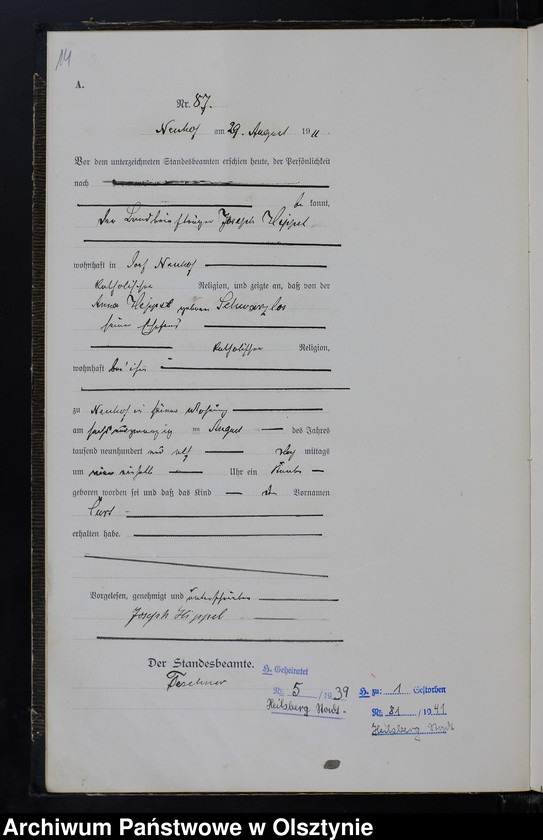 14
A.
Nr. 87.
Neuhof am 29. August 1911
Vor dem unterzeichneten Standesbeamten erschien heute, der Persönlichkeit
nach
be kannt,
der Landbriefträger Joseph Hippel
wohnhaft in Dorf Neuhof
katholischer Religion, und zeigte an, daß von der
Anna Hippel geboren Schwarz
seiner Ehefrau
katholischer Religion,
wohnhaft bei ihm
zu Neuhof in seiner Wohnung
am sechsundzwanzig ten August des Jahres
tausend neunhundert und elf Nach mittags
um Uhr ein Knabe
geboren worden sei und daß das Kind den Vornamen
Curt
erhalten habe.
Vorgelesen, genehmigt und unterschrieben
Joseph Hippel
Der Standesbeamte.
Teschner
H. Geheiratet
Nr. 5 / 1939
Heilsberg
H. zu: 1 Gestorben
Nr. 81 / 1941
Heilsberg
Archiwum Państwowe w Olsztynie